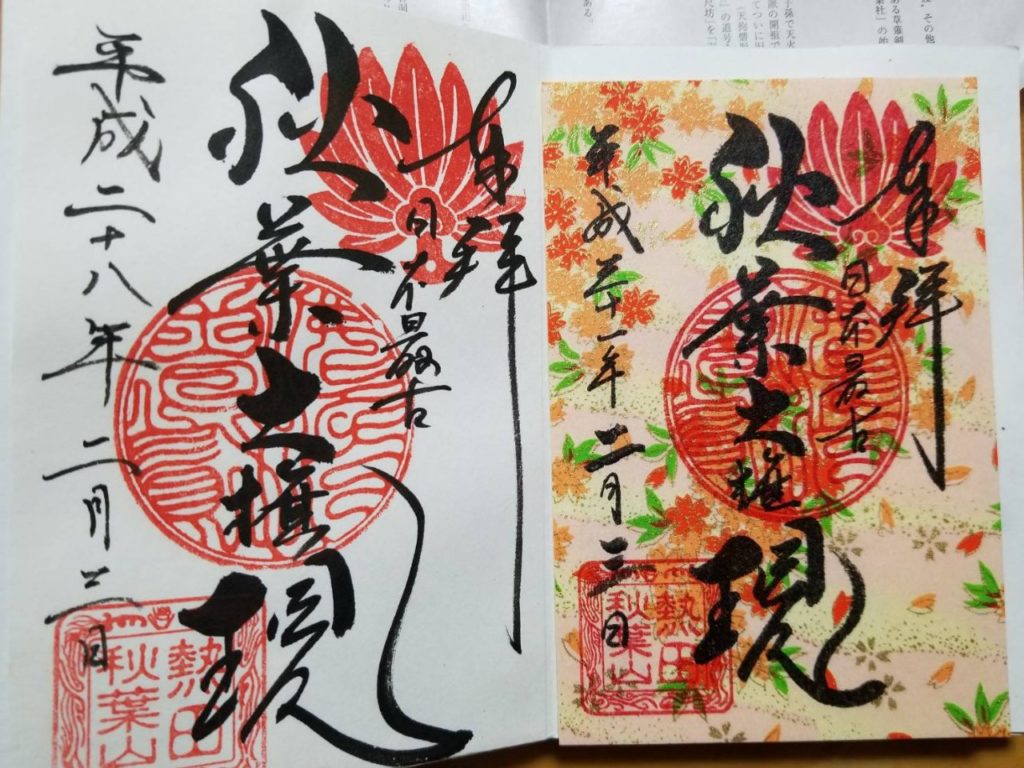 奉拝
日本最古
秋葉大権現
平成二十八年二月三日
熱田
秋葉山
奉拝
日本最古
秋葉大権現
平成三十一年二月三日
熱田
秋葉山
その他
ある草薙剣
ある。